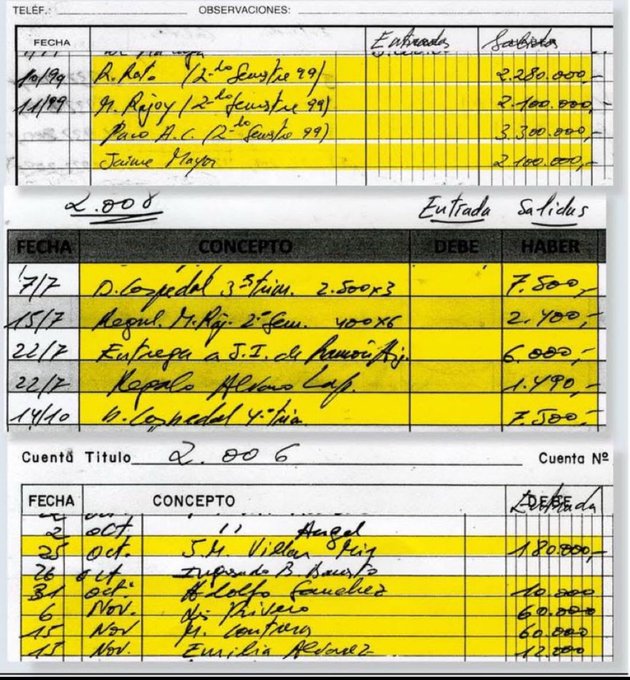 TELÉF.: OBSERVACIONES:
FECHA Entradas Salidas
10/99 R. Rato (2º Semestre 99) 2.280.000,-
11/99 M. Rajoy (2º Semestre 99) 2.100.000,-
Paco A.C. (2º Semestre 99) 3.300.000,-
Jaime Mayor 2.100.000,-
2.008 Entrada Salidas
FECHA CONCEPTO DEBE HABER
7/7 D. Cospedal 3º trim. 2.500x3 7.500,-
15/7 Regul. M. Raj. 2º Sem. 400x6 2.400,-
22/7 Entrega a J.I. de 6.000,-
22/7 Regalo Alvaro Lap. 1.490,-
14/10 D. Cospedal 4º trim. 7.500,-
Cuenta Título 2.006 Cuenta Nº
FECHA CONCEPTO DEBE Entrada
2 oct. " Angel
25 oct. J.M. Villar Mir 180.000,-
26 oct Ingresado B.
31 oct. Adolfo Sanchez 10.000
6 Nov. 60.000
15 Nov M. Contreras 60.000
13 Nov. Emilio Alvarez 12.000